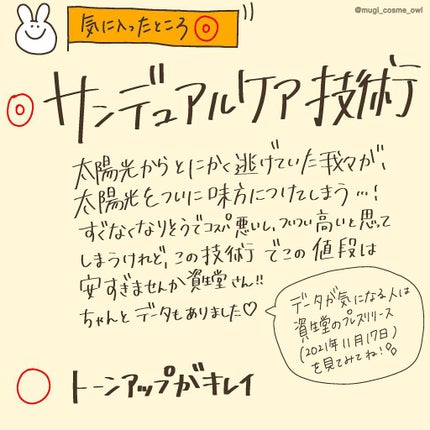 @mugi_cosme_owl
気に入ったところ◎
◎サンデュアルケア技術
太陽光からとにかく逃げていた我々が、
太陽光をついに味方につけてしまう…!
すぐなくなりそうでコスパ悪いし、ついつい高いと思って
しまうけれど、この技術でこの値段は
安すぎませんか資生堂さん!!
ちゃんとデータもありました♡
データが気になる人は
資生堂のプレスリリース
(2021年11月17日)
を見てみてね!
○トーンアップがキレイ